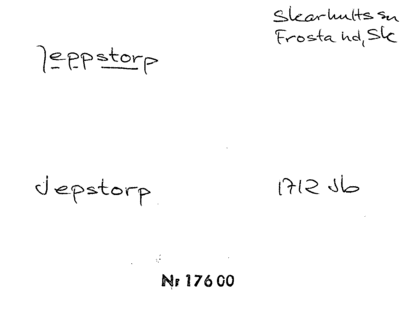 Skarhults sn
Jeppstorp Frosta hd, Sk
Jepstorp 1712 Jb
Nr 17600